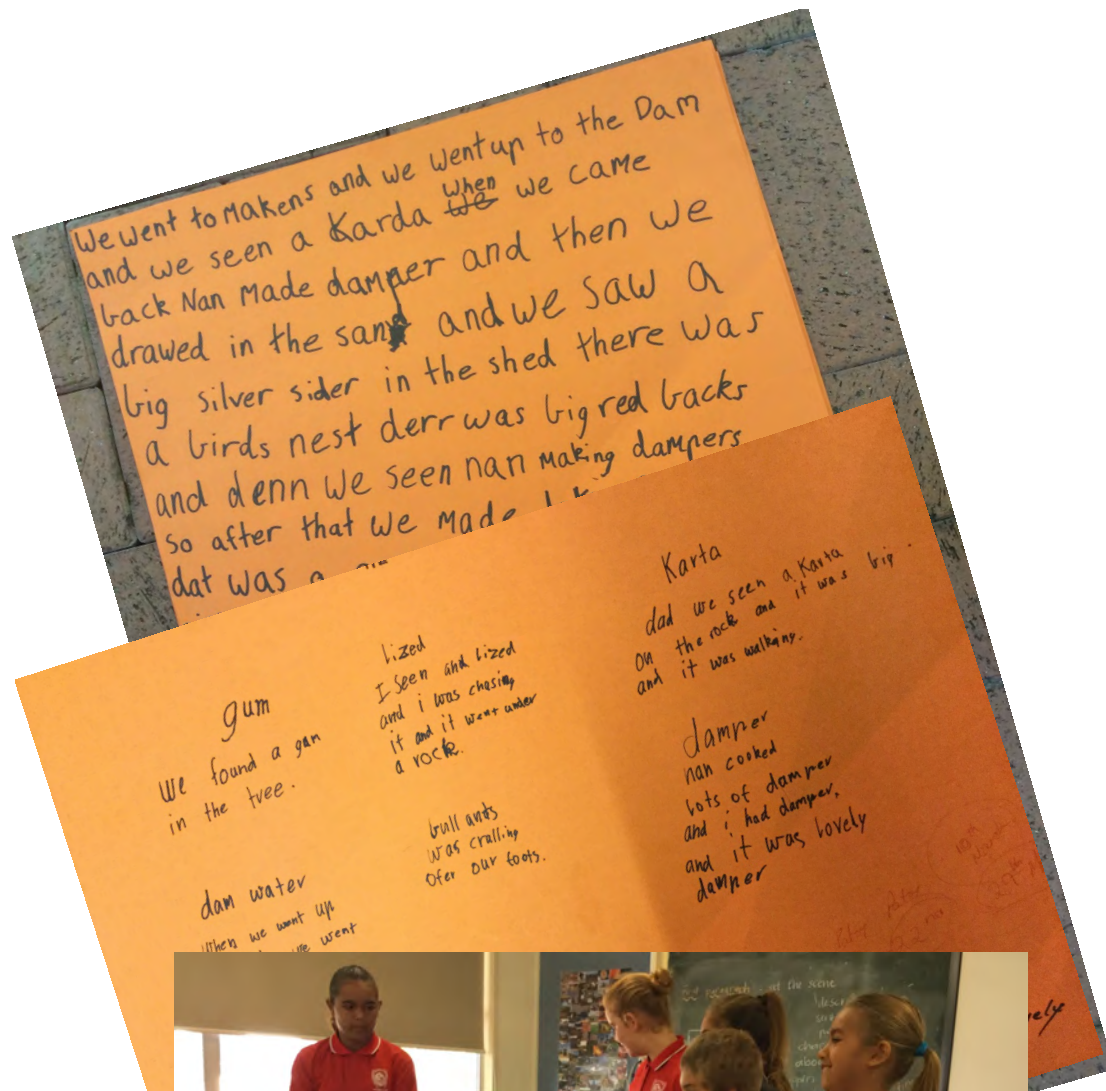 We went to Makens and we went up to the Dam
and we seen a Karda when we came
back Nan Made damper and then we
drawed in the sand and we saw a
big silver sider in the shed there was
a birds nest derr was big red backs
and denn we seen nan Making dampers
so after that we made
dat was a
gum
we found a gun
in the tree.
dam water
when we went up
we went
lized
I seen and lized
and i was chasing
it and it went under
a rock.
bull ants
was cralling
ofer our foots.
Karta
dad we seen a Karta
on the rock and it was big.
and it was walking.
damper
nan cooked
lots of damper
and i had damper,
and it was lovely
damper
at the scene